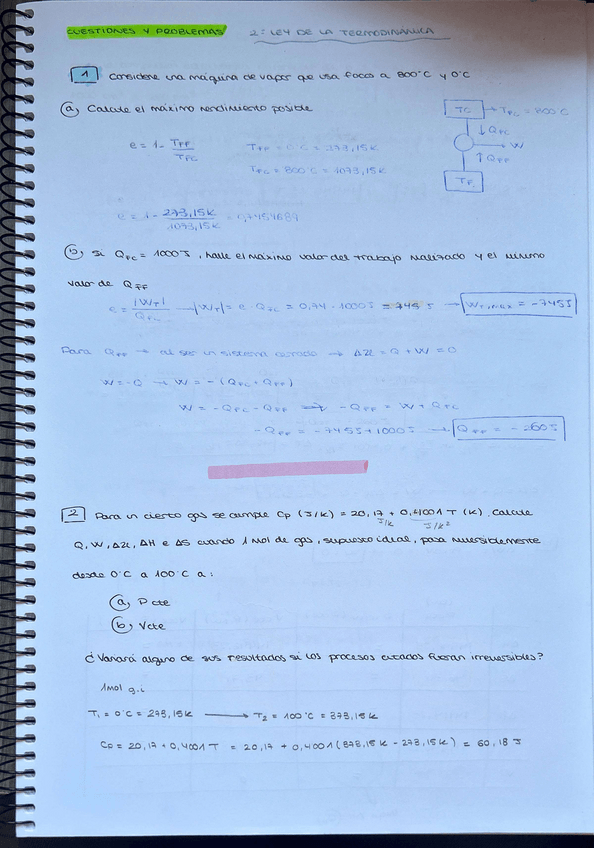 CUESTIONES Y PROBLEMAS 2ª LEY DE LA TERMODINÁMICA
1 Considere una máquina de vapor que usa focos a 800°C y 0°C
a) Calcule el máximo rendimiento posible
TC → T_FC = 800°C
↓ Q_FC
→ W
↑ Q_FF
TF
e = 1 - T_FF / T_FC
T_FF = 0°C = 273,15K
T_FC = 800°C = 1073,15K
e = 1 - 273,15K / 1073,15K = 0,7454689
b) Si Q_FC = 1000J, halle el máximo valor del trabajo realizado y el mínimo
valor de Q_FF
e = |W_T| / Q_FC → |W_T| = e · Q_FC = 0,74 · 1000J = 745 J → W_T,max = -745J
Para Q_FF → al ser un sistema cerrado → ΔU = Q + W = 0
W = -Q → W = - (Q_FC + Q_FF)
W = -Q_FC - Q_FF ⟹ -Q_FF = W + Q_FC
-Q_FF = -745J + 1000J → Q_FF = - 260J
2 Para un cierto gas se cumple Cp (J/K) = 20,17 + 0,4001 T (K). Calcule
J/K J/K²
Q, W, ΔU, ΔH e ΔS cuando 1 mol de gas, supuesto ideal, pasa reversiblemente
desde 0°C a 100°C a:
a) P cte
b) V cte
¿Variará alguno de sus resultados si los procesos citados fueran irreversibles?
1mol g.i
T₁ = 0°C = 273,15K → T₂ = 100°C = 373,15K
Cp = 20,17 + 0,4001 T = 20,17 + 0,4001 (373,15K - 273,15K) = 60,18 J